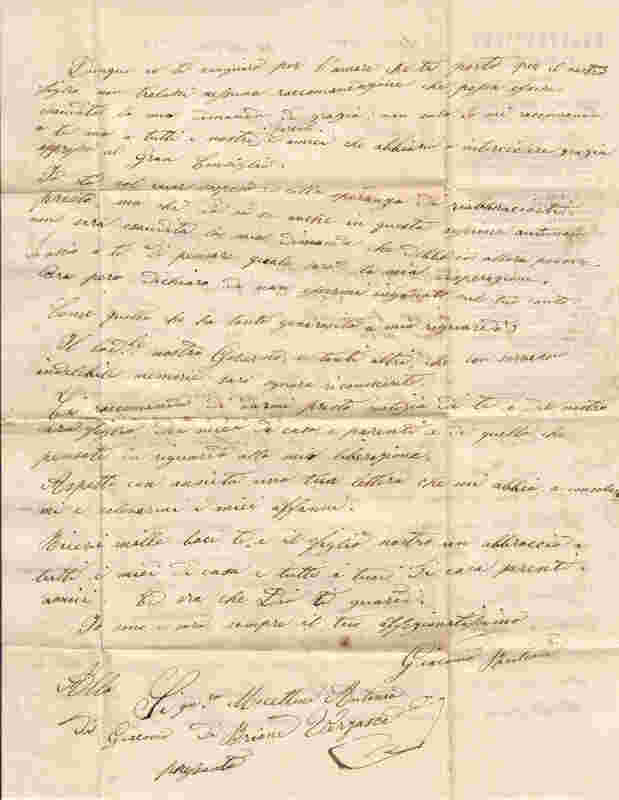 Dunque io ti scongiuro per l'amore che ti porto per il nostro
figlio non tralasci nessuna raccomandazione che possa essere
la mia domanda di grazia non solo io mi raccomando
a te ma a tutti i nostri amici che abbiano a grazia
al Gran Consiglio.
Io sol speranza di riabbracciarti
presto, ma chi lo sa se anche in questa autunnale
non sarà esaudita la mia dimanda che debbo io allora
Lascio a te di pensare quale sarà la mia disperazione.
Ora però dichiaro di non essermi ingannato nel tuo conto.
Come quello che ha tanta generosità a mio riguardo;
Il nostro Governo, e tanti altri, che con
indelebile memoria sarò ognora riconoscente
Ti raccomando di darmi presto notizia di te e del nostro
caro figlio dei miei di casa e parenti e di quello che
pensate in riguardo alla mia liberazione.
Aspetto con ansietà una tua lettera che mi abbia a consolar
mi e i miei affanni.
Ricevi mille baci te, e il figlio nostro un abbraccio a
tutti i miei di casa e tutti i tuoi di casa parenti
amici. E ora che Dio ti guardi.
Io sono e sarò sempre il tuo affezionatissimo
Giacomo
Alla
Sig.ra Antonia
di Giacomo di Brione Verzasca